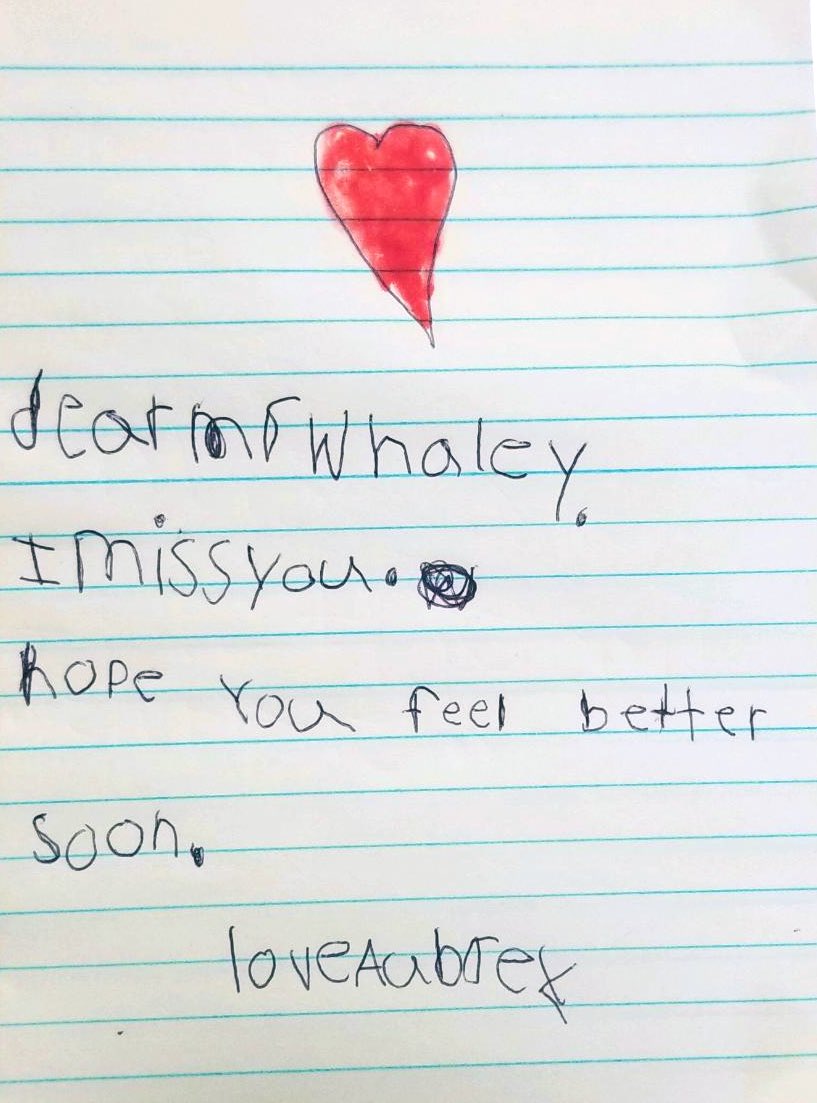 dear mr Whaley.
I miss you.
hope You feel better
soon.
love Aubrey